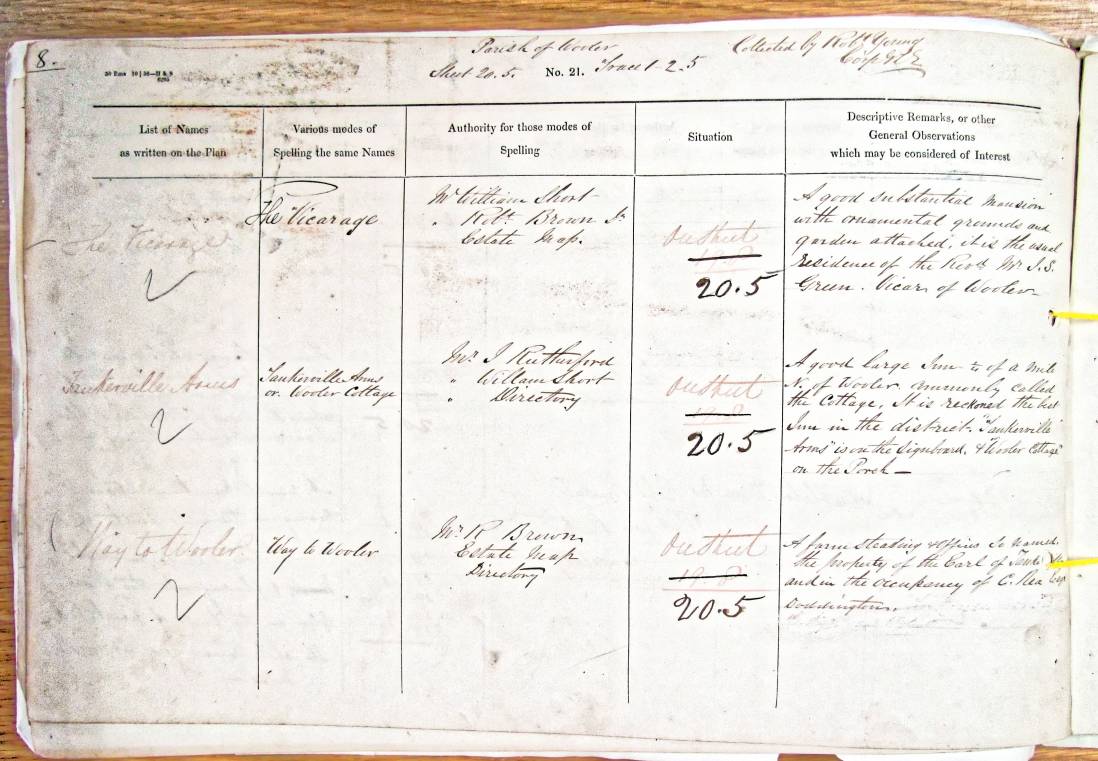 8.
Parish of Wooler
Collected by Robt. Young
Corpl RE
Sheet 20.5. No. 21. Trace 1-2.5
List of Names
as written on the Plan
Various modes of
Spelling the same Names
Authority for those modes of
Spelling
Situation
Descriptive Remarks, or other
General Observations
which may be considered of Interest
The Vicarage
The Vicarage
Mr William Short
" Robt. Brown Sr
Estate Map.
On Sheet
20.5
A good substantial mansion
with ornamental grounds and
garden attached, it is the usual
residence of the Revd. Mr J. S.
Green. Vicar of Wooler
Tankerville Arms
Tankerville Arms
or Wooler Cottage
Mr. J Rutherford
" William Short
" Directory
On Sheet
20.5
A good large Inn ¼ of a Mile
N. of Wooler commonly called
the Cottage. It is reckoned the best
Inn in the district. "Tankerville
Arms" is on the Signboard, & "Wooler Cottage"
on the Porch —
Way to Wooler
Way to Wooler
Mr. R Brown
Estate Map
Directory
On Sheet
20.5
A farm steading & Offices so named
the property of the Earl of
and in the occupancy of C. Rea Esq
Doddington.